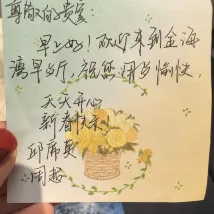 尊敬的贵宾：
早上好！欢迎来到金海
湾早餐厅，祝您用歺愉快，
天天开心
新春快乐！
邱席英
周超